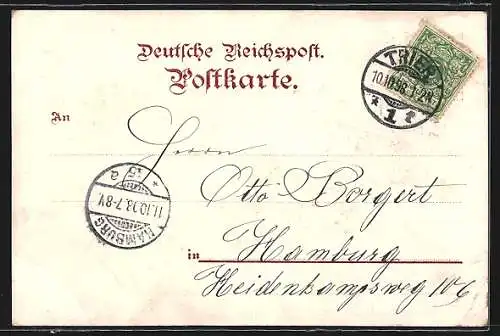 Deutsche Reichspost.
Postkarte.
TRIER
10.10.98.1-2N.
* 1 f
An
Herrn
Otto Borgert
in Hamburg
Heidenkampsweg 106
* 5 a
11.10.98.7-8V.
HAMBURG